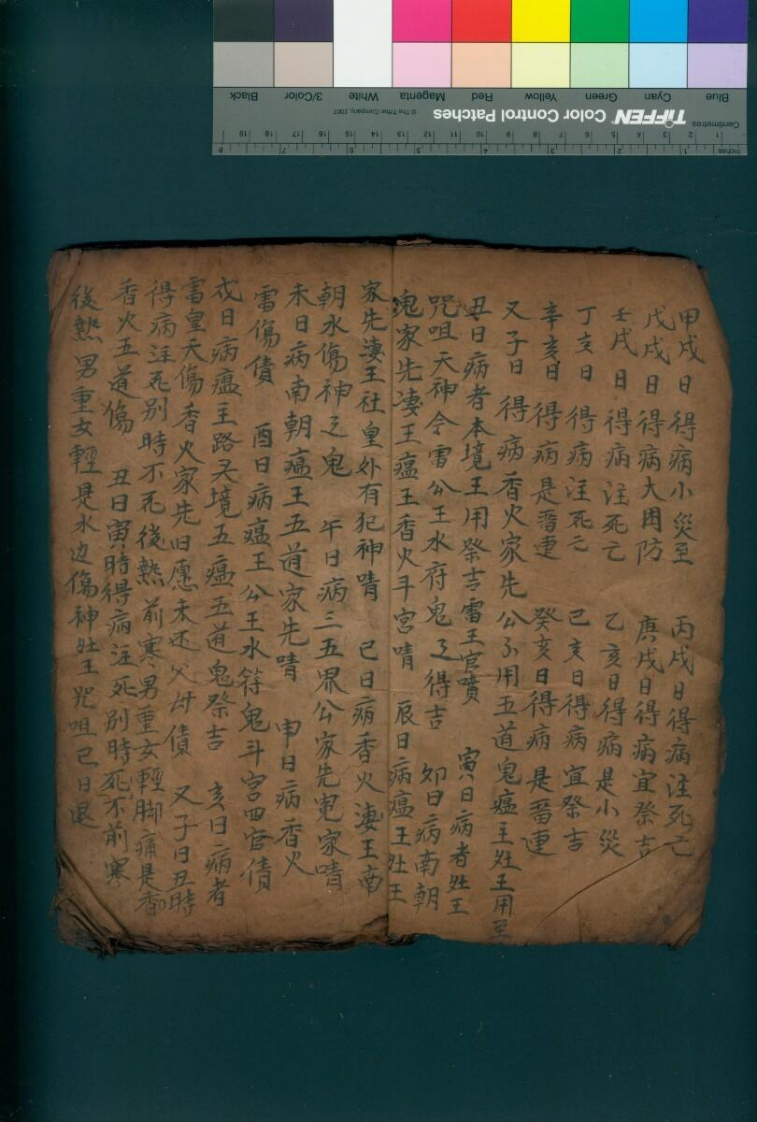 甲戌日得病小災至 丙戌日得病注死亡
戊戌日得病大困防 庚戌日得病宜祭吉
壬戌日得病注死亡 乙亥日得病是小災
丁亥日得病注死亡 己亥日得病宜祭吉
辛亥日得病是 連 癸亥日得病是 連
又子日得病香火家先公 用五道鬼瘟王姓王用至
丑日病者本境王用祭吉雷王官嘖 寅日病者姓王
咒咀天神令雷公王水府鬼 得吉 卯日病南朝
鬼家先凄王瘟王香火斗宮啨 辰日病瘟王姓王
家先凄王社皇外有犯神啨 巳日病香火凄王南
朝水傷神之鬼 午日病三五界公家先冤家啨
未日病南朝瘟王五道家先啨 申日病香火
雷傷債 酉日病瘟王公王水符鬼斗宮四官債
戌日病瘟王路 境五瘟五道鬼祭吉 亥日病者
雷皇天傷香火家先旧愿未还父母債 又子日丑時
得病注死別時不死後熱前寒男重女輕脚痛是香
香火五道傷 丑日寅時得病注死別時死不前寒
後熱男重女輕是水边傷神姓王咒咀己日退
TIFFEN Color Control Patches
© The Tiffen Company, 2007
Centimetres
Inches
Blue Cyan Green Yellow Red Magenta White 3/Color Black